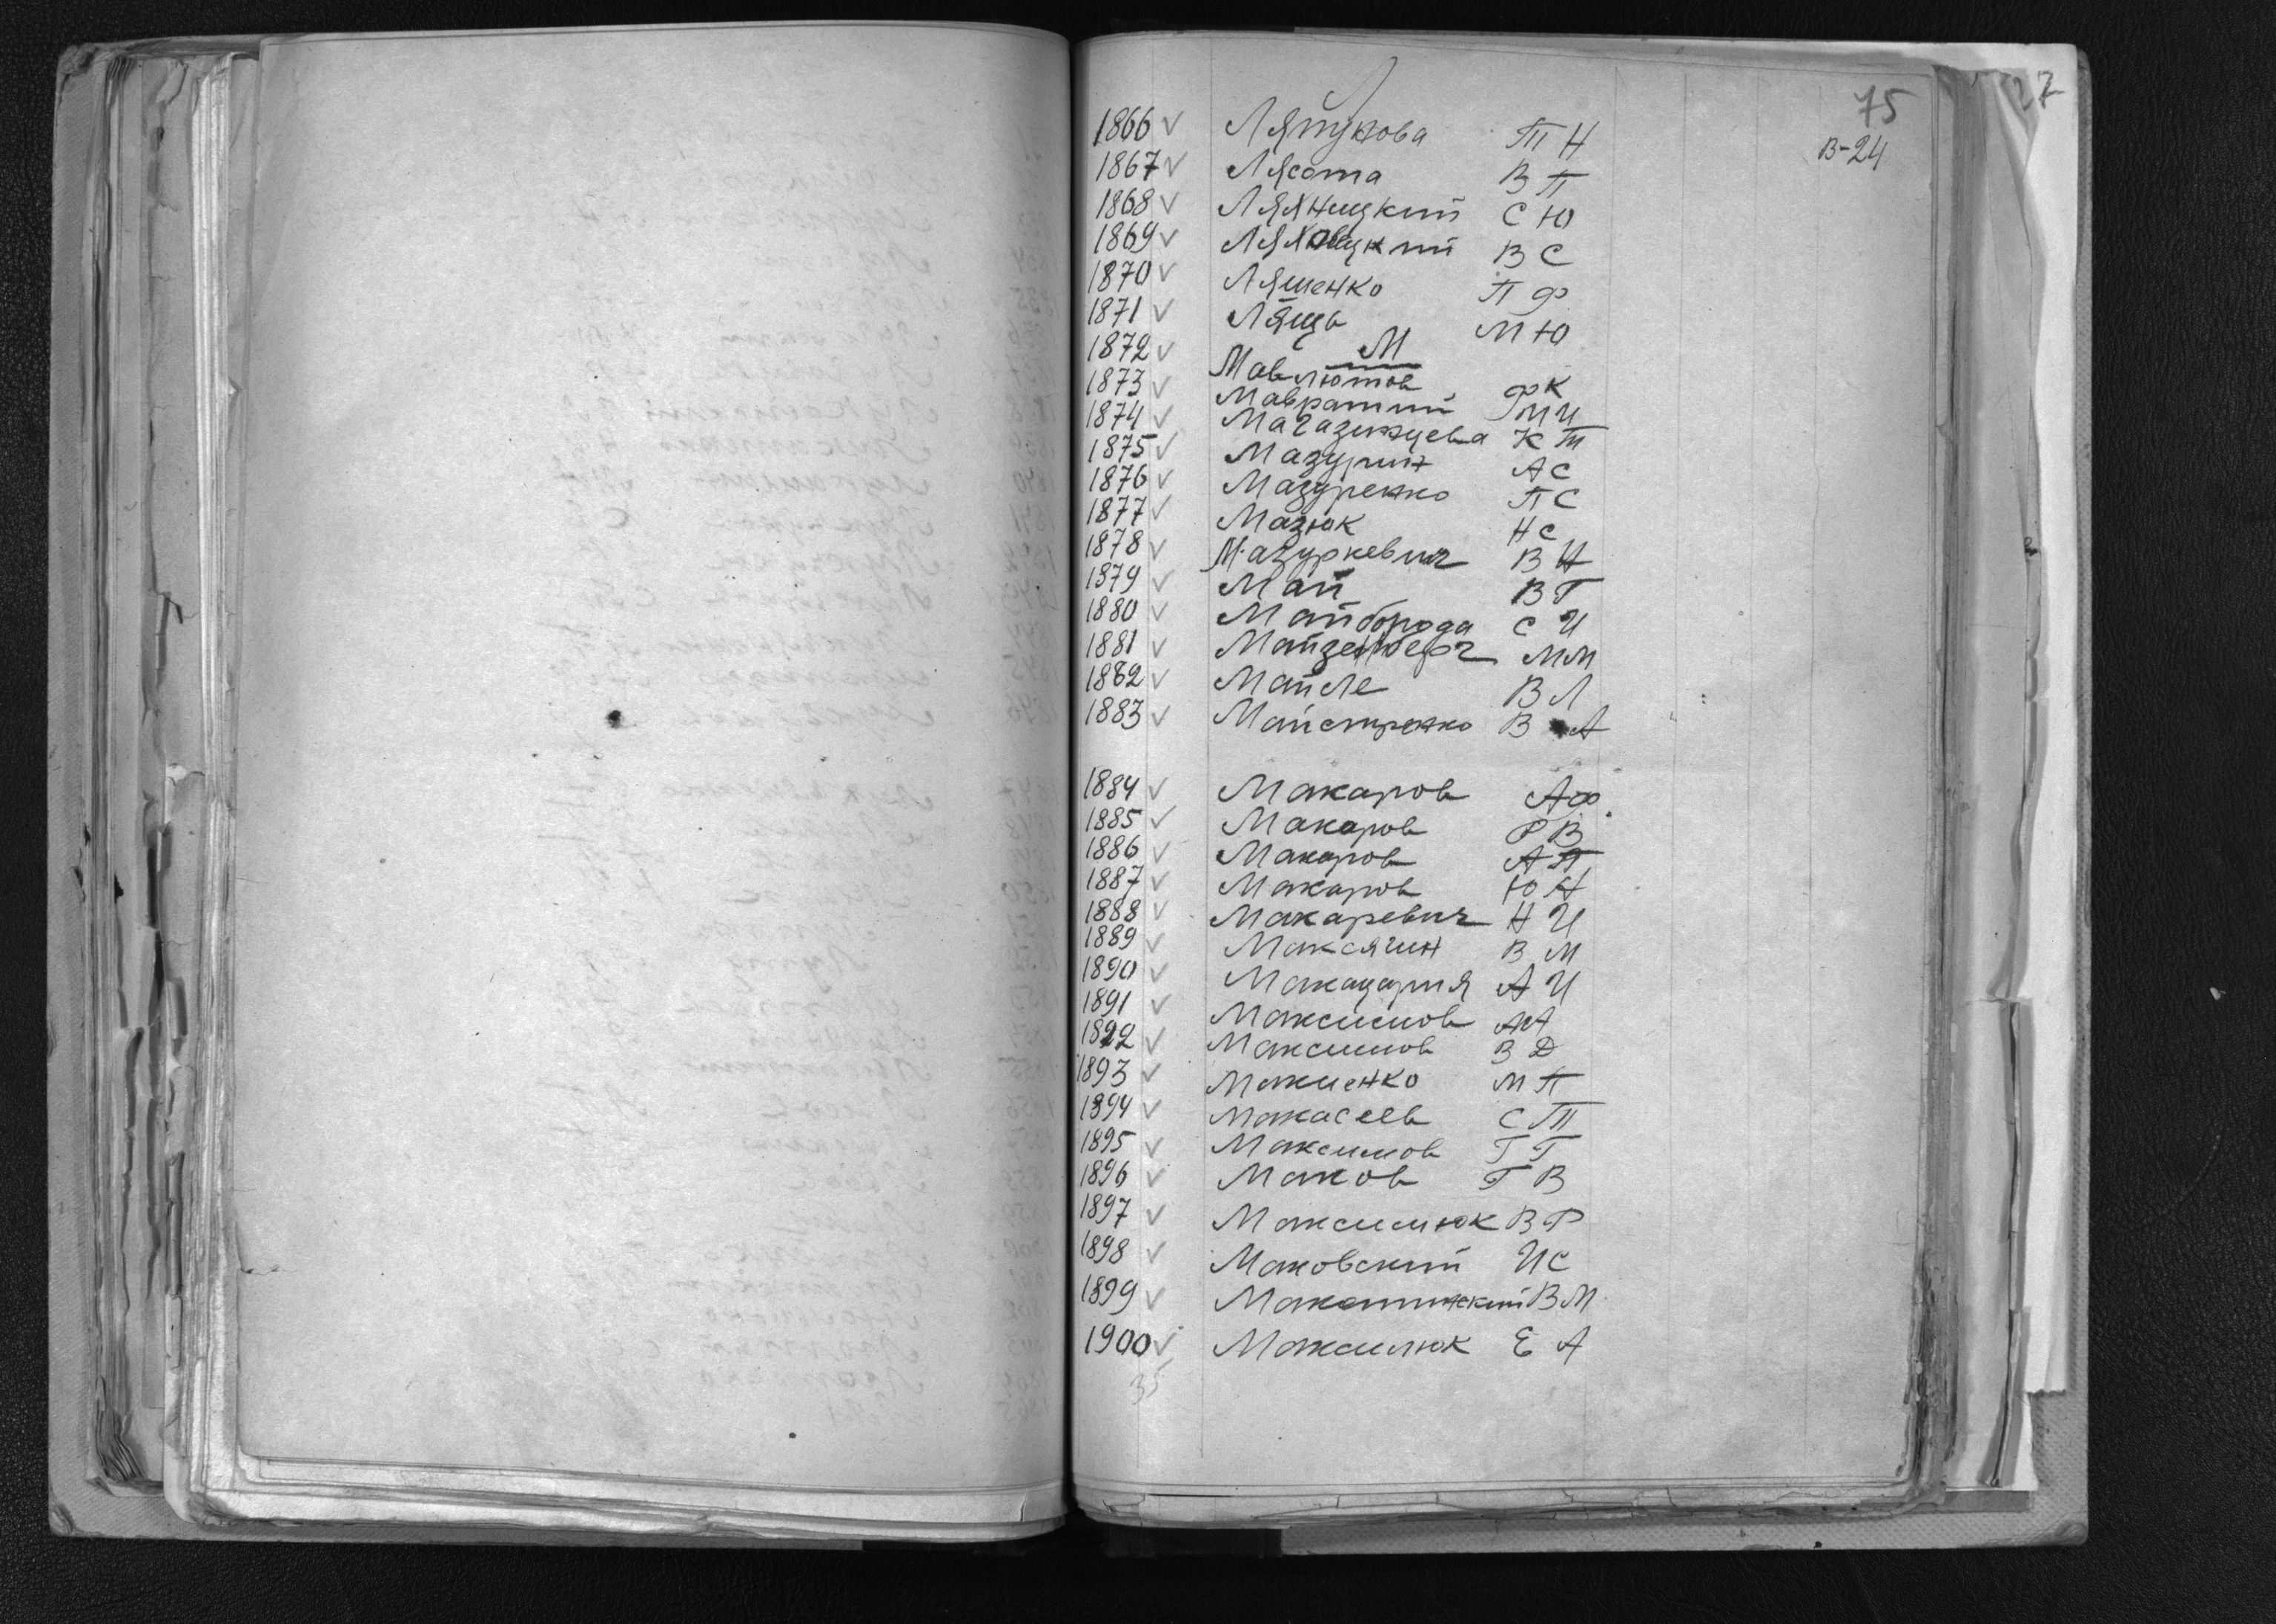 27
75
В-24
Л
1866 ✓ Ляпунова Т Н
1867 ✓ Лясота В П
1868 ✓ Ляхницкий С Ю
1869 ✓ Ляховицкий В С
1870 ✓ Ляшенко П Ф
1871 ✓ Лящь М Ю
М
1872 ✓ Мавлютов Ф К
1873 ✓ Мавратий М И
1874 ✓ К Т
1875 ✓ Мазурин А С
1876 ✓ Мазуренко П С
1877 ✓ Мазюк Н С
1878 ✓ Мазуркевич В Н
1879 ✓ Май В Г
1880 ✓ Майборода С И
1881 ✓ Майзенберг М М
1882 ✓ Майсле В Л
1883 ✓ Майстренко В А
1884 ✓ Макаров А Ф
1885 ✓ Макаров Р В
1886 ✓ Макаров А П
1887 ✓ Макаров Ю А
1888 ✓ Макаревич Н И
1889 ✓ Максягин В М
1890 ✓ Макацария А И
1891 ✓ Максимов А А
1892 ✓ Максимов В Д
1893 ✓ М П
1894 ✓ Макасеев С П
1895 ✓ Максимов Г Г
1896 ✓ Маков Г В
1897 ✓ Максимюк В Р
1898 ✓ Маковский И С
1899 ✓ В М
1900 ✓ Максимюк Е А
35